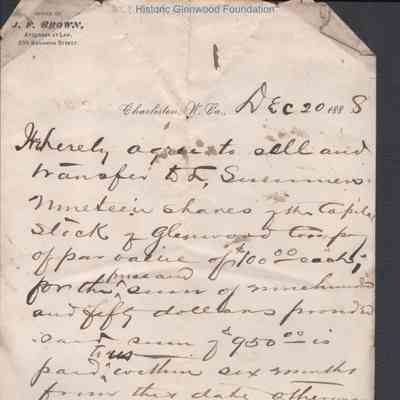 Historic Glenwood Foundation
OFFICE OF
J. F. BROWN,
ATTORNEY AT LAW,
Charleston, W. Va., Dec 20 1888
hereby agree to sell and
transfer to Summers
nineteen shares of the Capital
Stock of Glenwood Company
of par value of $100.00 each,
for the price and sum of nine hundred
and fifty dollars provided
said sum of $950.00 is
paid within six months
from this date otherwise